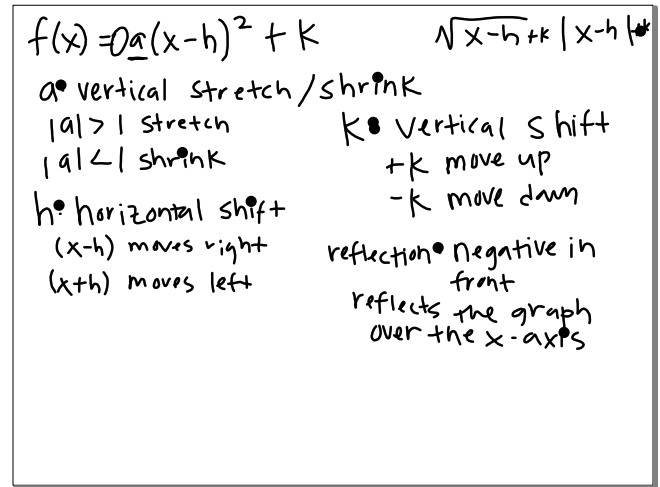 f(x) = 0a(x-h)² + k
√x-h +k |x-h|+k
a: vertical stretch/shrink
|a| > 1 stretch
|a| < 1 shrink
h: horizontal shift
(x-h) moves right
(x+h) moves left
k: vertical shift
+k move up
-k move down
reflection: negative in
front
reflects the graph
over the x-axis